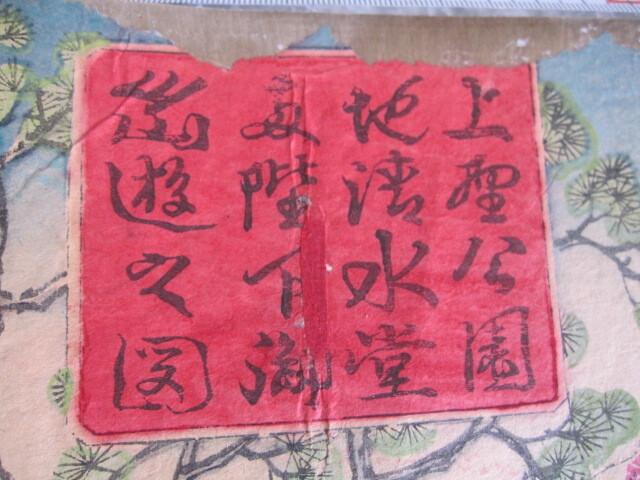 上野公園
地清水堂
陛下御
遊之図